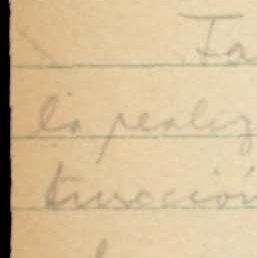 Ta
la realiz
trucción